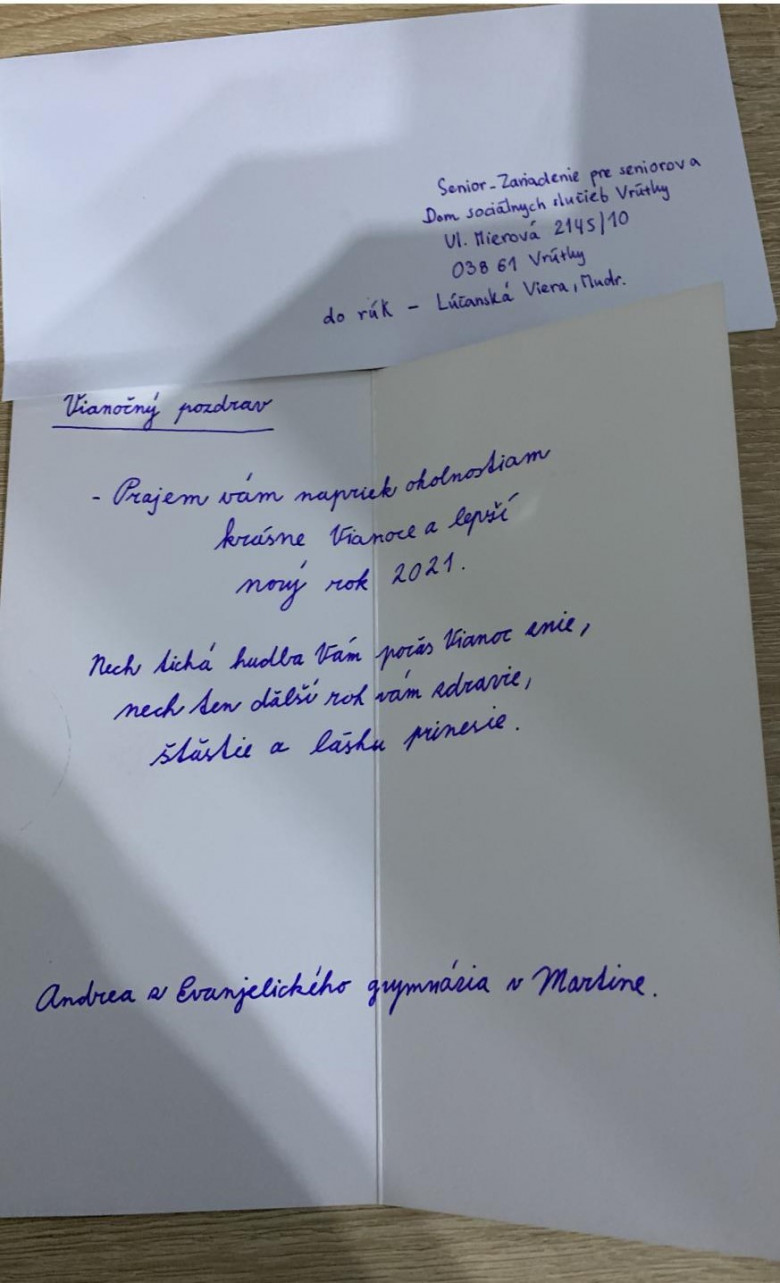 Senior-Zariadenie pre seniorov a
Dom sociálnych služieb Vrútky
Ul. Mierová 2145/10
038 61 Vrútky
do rúk - Lúčanská Viera, Mudr.
Vianočný pozdrav
- Prajem vám napriek okolnostiam
krásne Vianoce a lepší
nový rok 2021.
Nech tichá hudba Vám počas Vianoc znie,
nech ten dălší rok vám zdravie,
štăstie a lásku prinesie.
Andrea z Evanjelického gymnázia v Martine.